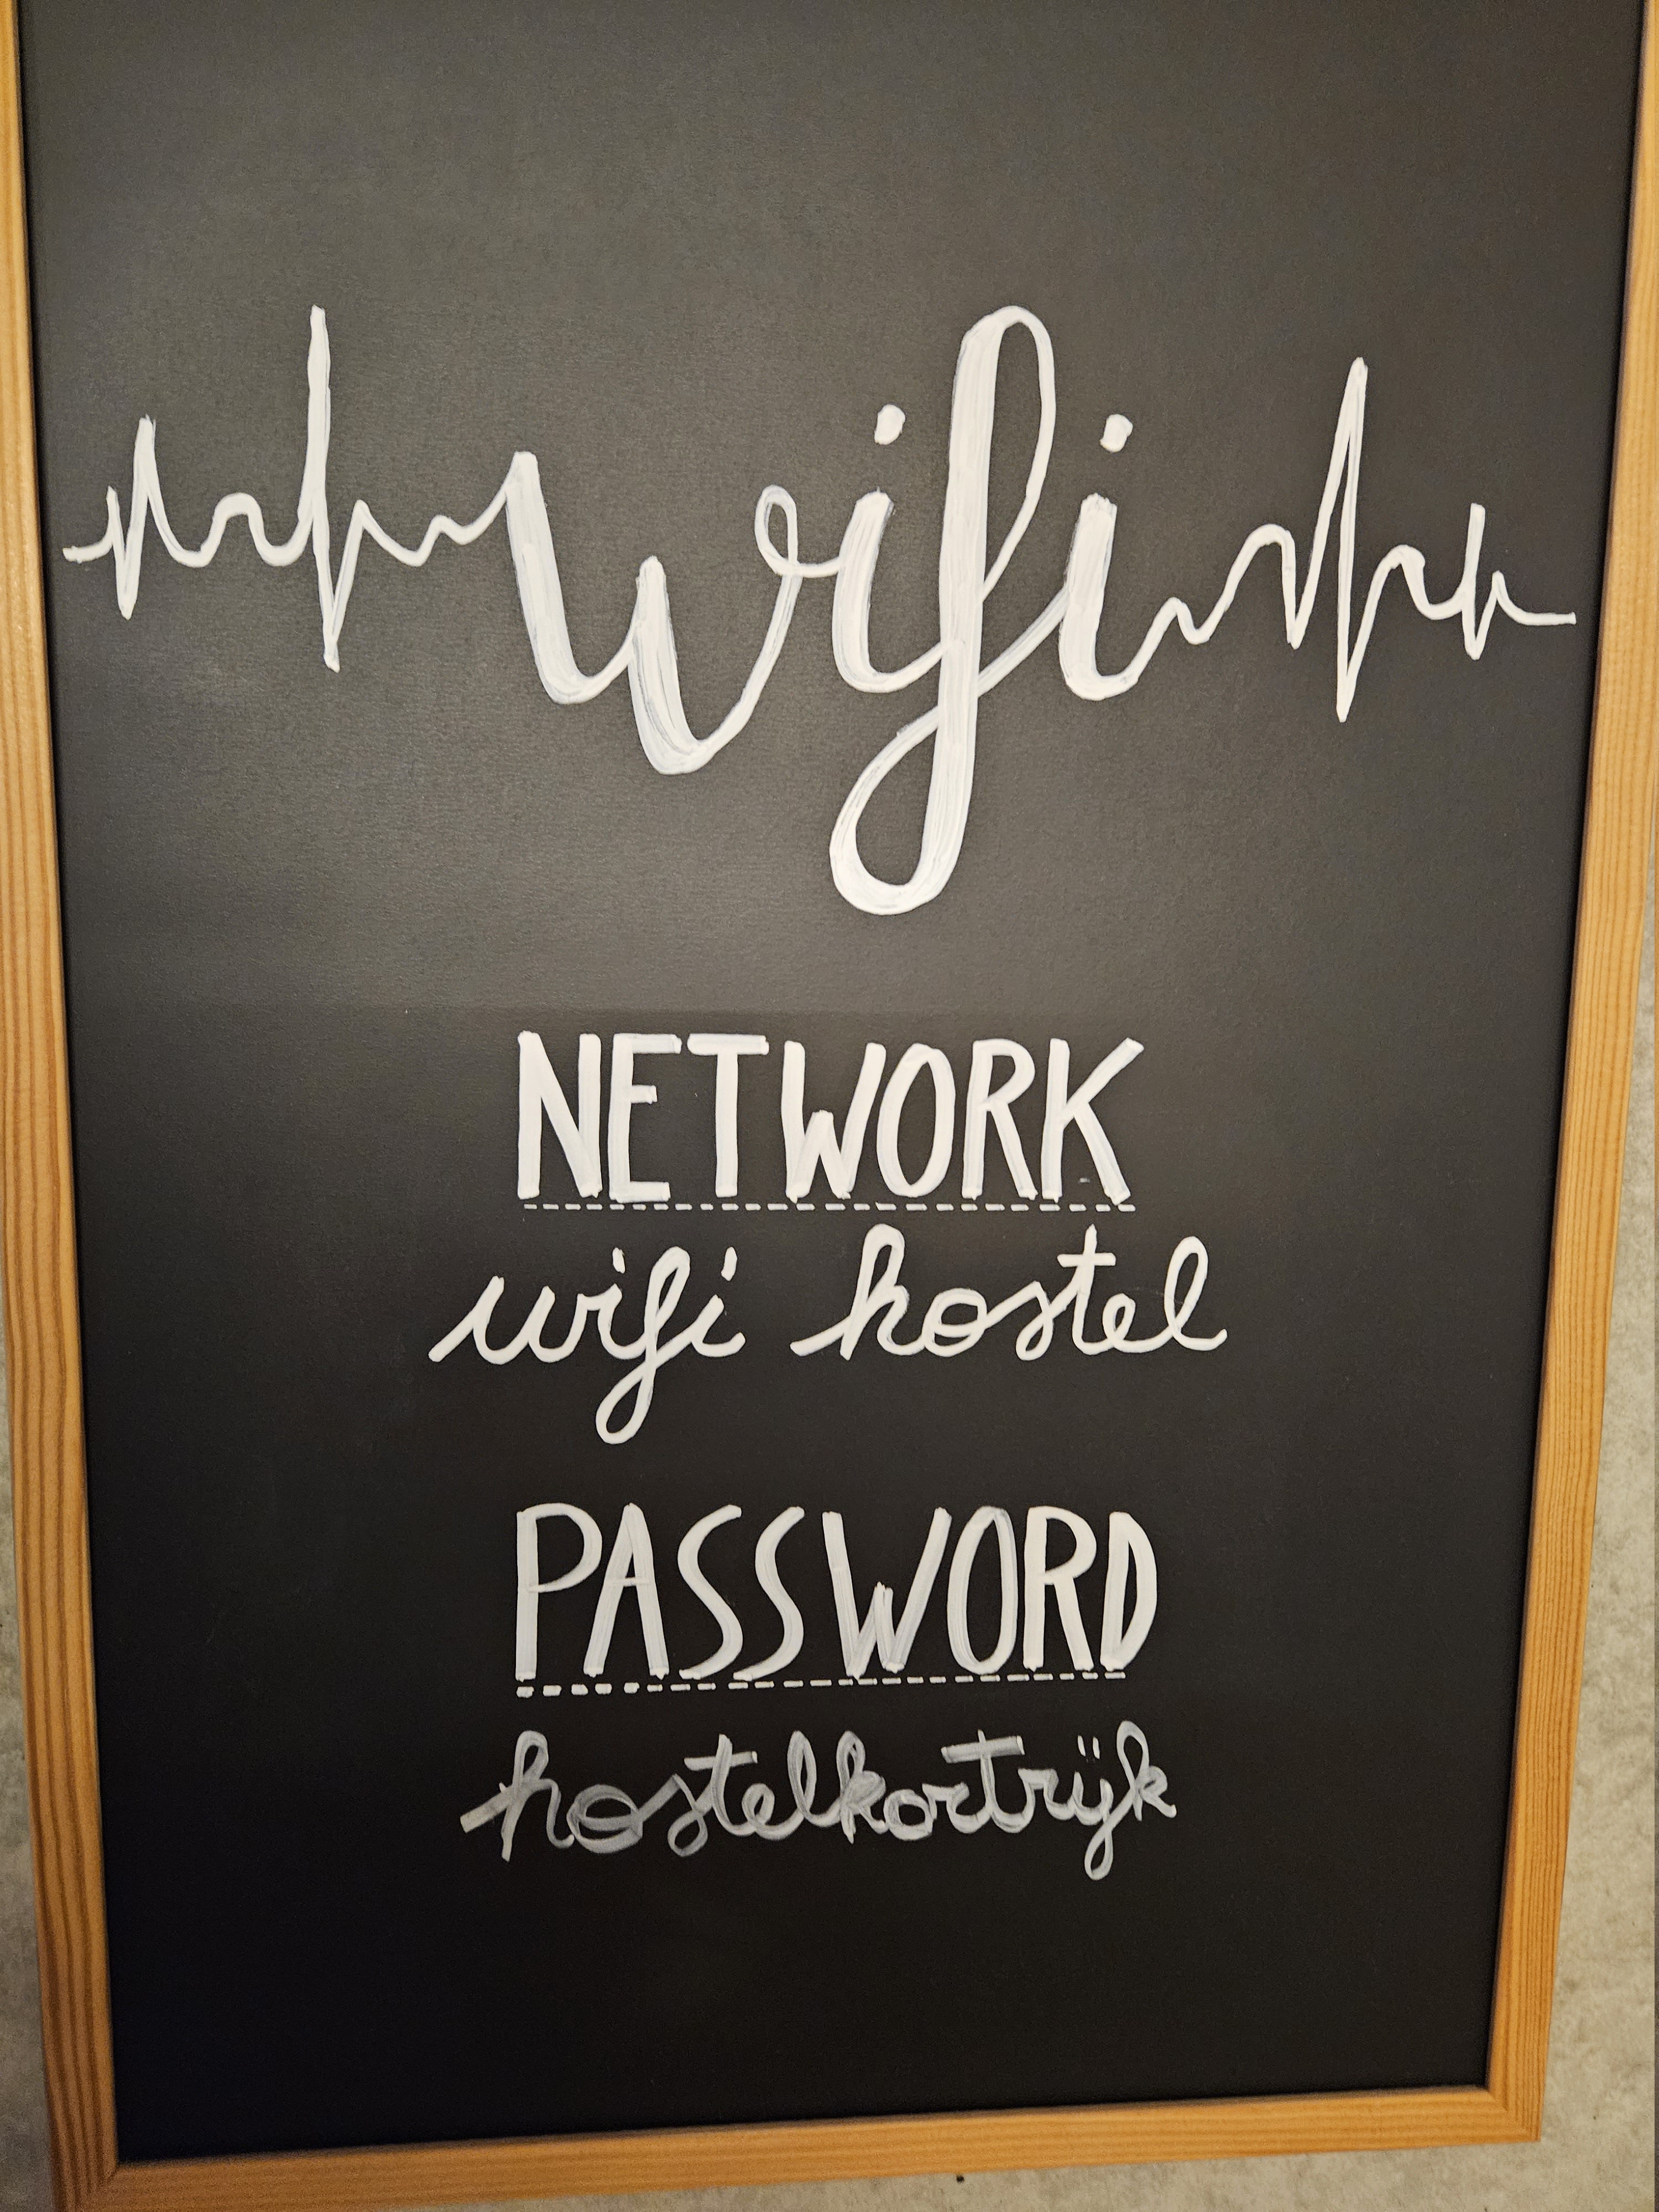 wifi
NETWORK
wifi hostel
PASSWORD
hostelkortrijk